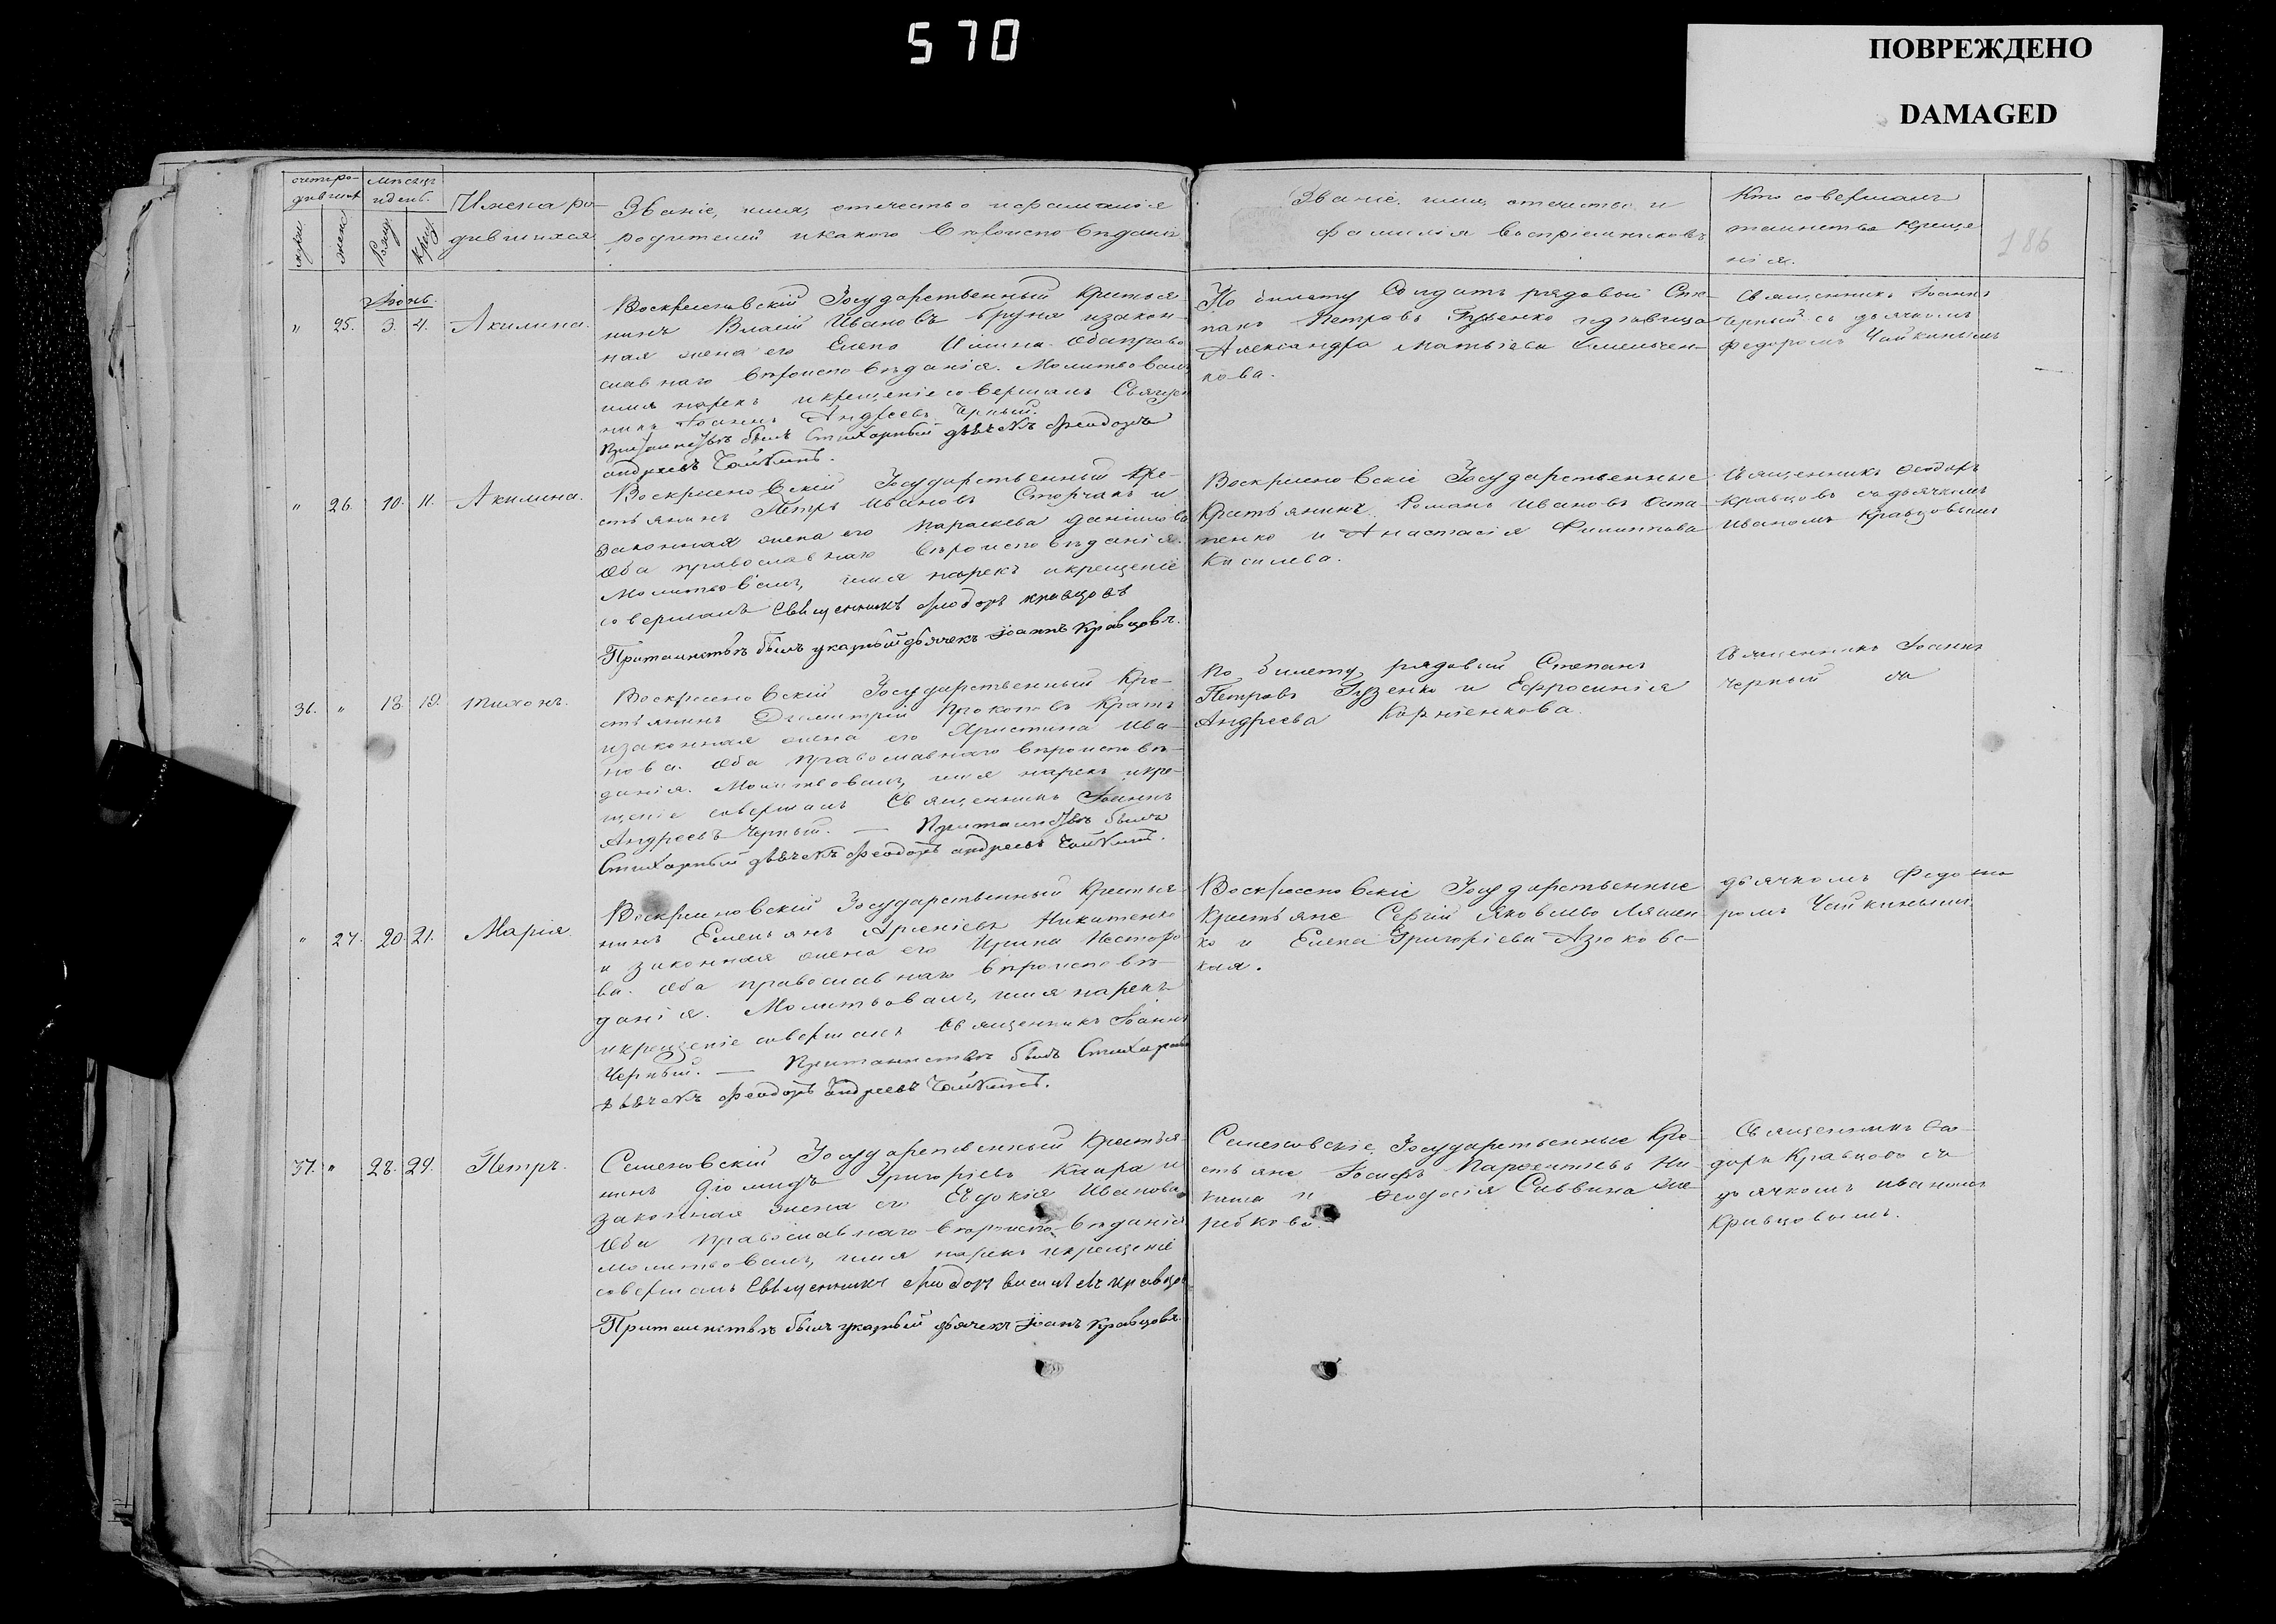 570
ПОВРЕЖДЕНО
DAMAGED
186
счетъ ро-
дившихся
мѣсяцъ
и день.
Имена ро-
дившихся
Званіе, имя, отчество и фамилія
родителей и какого вѣроисповѣданія
Званіе, имя, отечество и
фамилія воспріемниковъ
Кто совершалъ
таинство креще
нія.
Іюнь.
" 25. 3. 4. Акилина.
Воскресеновскій Государственный крестья
нинъ Власій Ивановъ и закон-
ная жена его Елена Обаправо
славнаго вѣроисповѣданія. Молитвовалъ
имя нарекъ и крещеніе совершалъ Священ
никъ Іоаннъ Андреевъ Черный.
При таинствѣ былъ Стихарный дьячекъ Феодоръ
андреевъ Чайкинъ.
По билету Солдатъ рядовой Сте-
панъ Петровъ Гузенко и дѣвица
Александра Матвіева Емельчен-
кова.
Священникъ Іоаннъ
Черный съ дьячкомъ
Федоромъ Чайкинымъ
" 26. 10. 11. Акилина.
Воскресеновскій Государственный кре-
стьянинъ Петръ Ивановъ Сторчакъ и
законная жена его Параскева Даніилова
Оба православнаго вѣроисповѣданія.
Молитвовалъ, имя нарекъ и крещеніе
совершалъ священникъ Феодоръ кравцовъ
При таинствѣ былъ указный дьячекъ Іоаннъ Кравцовъ.
Воскресеновскіе Государственные
Крестьянинъ Романъ Ивановъ Оста-
пенко и Анастасія Филиппова
Кисилева.
Священникъ Феодоръ
Кравцовъ съ дьячкомъ
Иваномъ Кравцовымъ
36. " 18. 19. Тихонъ.
Воскресеновскій Государственный Кре-
стьянинъ Димитрій Прокоповъ Кратъ
и законная жена его Христина Ива-
нова. Оба православнаго вѣроисповѣ-
данія. Молитвовалъ, имя нарекъ и кре-
щеніе совершалъ Священникъ Іоаннъ
Андреевъ Черный. — При таинствѣ былъ
Стихарный дьячекъ Феодоръ андреевъ Чайкинъ.
По билету рядовый Степанъ
Петровъ Гузенко и Ефросинія
Андреева Корніенкова.
Священникъ Іоаннъ
Черный съ
" 27. 20. 21. Марія.
Воскресеновскій Государственный Крестья-
нинъ Емельянъ Арсеніевъ Никитенко
и законная жена его Ирина Несторо
ва. Оба православнаго вѣроисповѣ-
данія. Молитвовалъ, имя нарекъ
и крещеніе совершалъ Священникъ Іоаннъ
Черный. — При таинствѣ былъ Стихарный
дьячекъ Феодоръ андреевъ Чайкинъ.
Воскресеновскіе Государственные
Крестьяне Сергій Яковлевъ Ляшен
ко и Елена Григоріева Азюковс-
кая.
дьячкомъ Федо
ромъ Чайкинымъ.
37. " 28. 29. Петръ.
Семеновскій Государственный Крестья-
нинъ Діомидъ Григоріевъ и
законная жена его Евдокія Иванова
Оба православнаго вѣроисповѣданія
молитвовалъ, имя нарекъ и крещеніе
совершалъ священникъ Феодоръ кравцовъ
При таинствѣ былъ указный дьячекъ Іоанъ Кравцовъ.
Семеновскіе Государственные Кре-
стьяне Іосифъ Парфентіевъ
и Феодосія Саввина Же-
ребкова.
Священникъ Фео-
доръ Кравцовъ съ
дьячкомъ Иваномъ
Кравцовымъ.